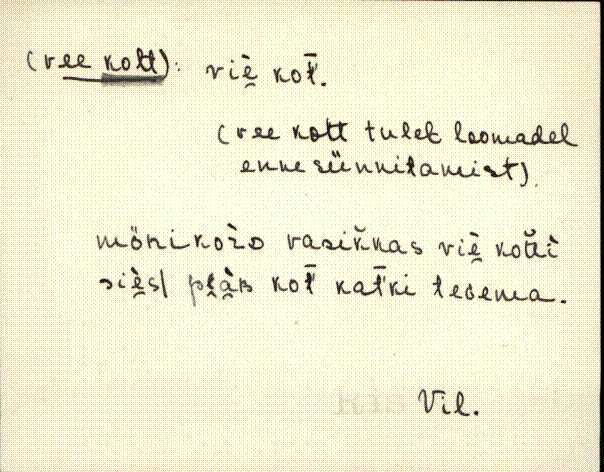 (vee kott): viè̮ kot̄'.
(vee kott tuleb loomadel
enne sünnitamist).
mönikoò̀rᴅ vasik̆kas viè̮ kot̆t'ì
siè̮s/ pi̮à̮ʙ kot̄' kat̄'ki teɢema.
Vil.